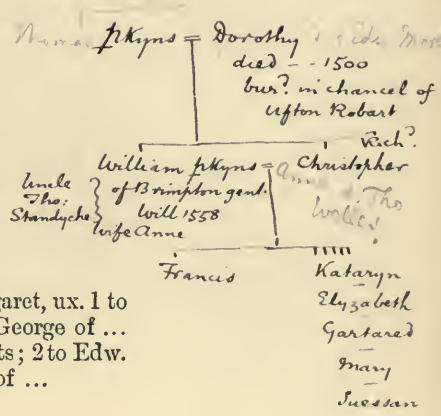 Thomas Pkyns = Dorothy
died - - 1500
burd in chancel of
Ufton Robart
Richd.
William Pkyns = Christopher
of Brimpton gent.
Will 1558
wife Anne
Uncle
Tho:
Standyche
Anne Tho
Francis
Kataryn
Elyzabeth
Gartared
Mary
Suessan
garet, ux. 1 to
George of ...
ts; 2 to Edw.
of ...